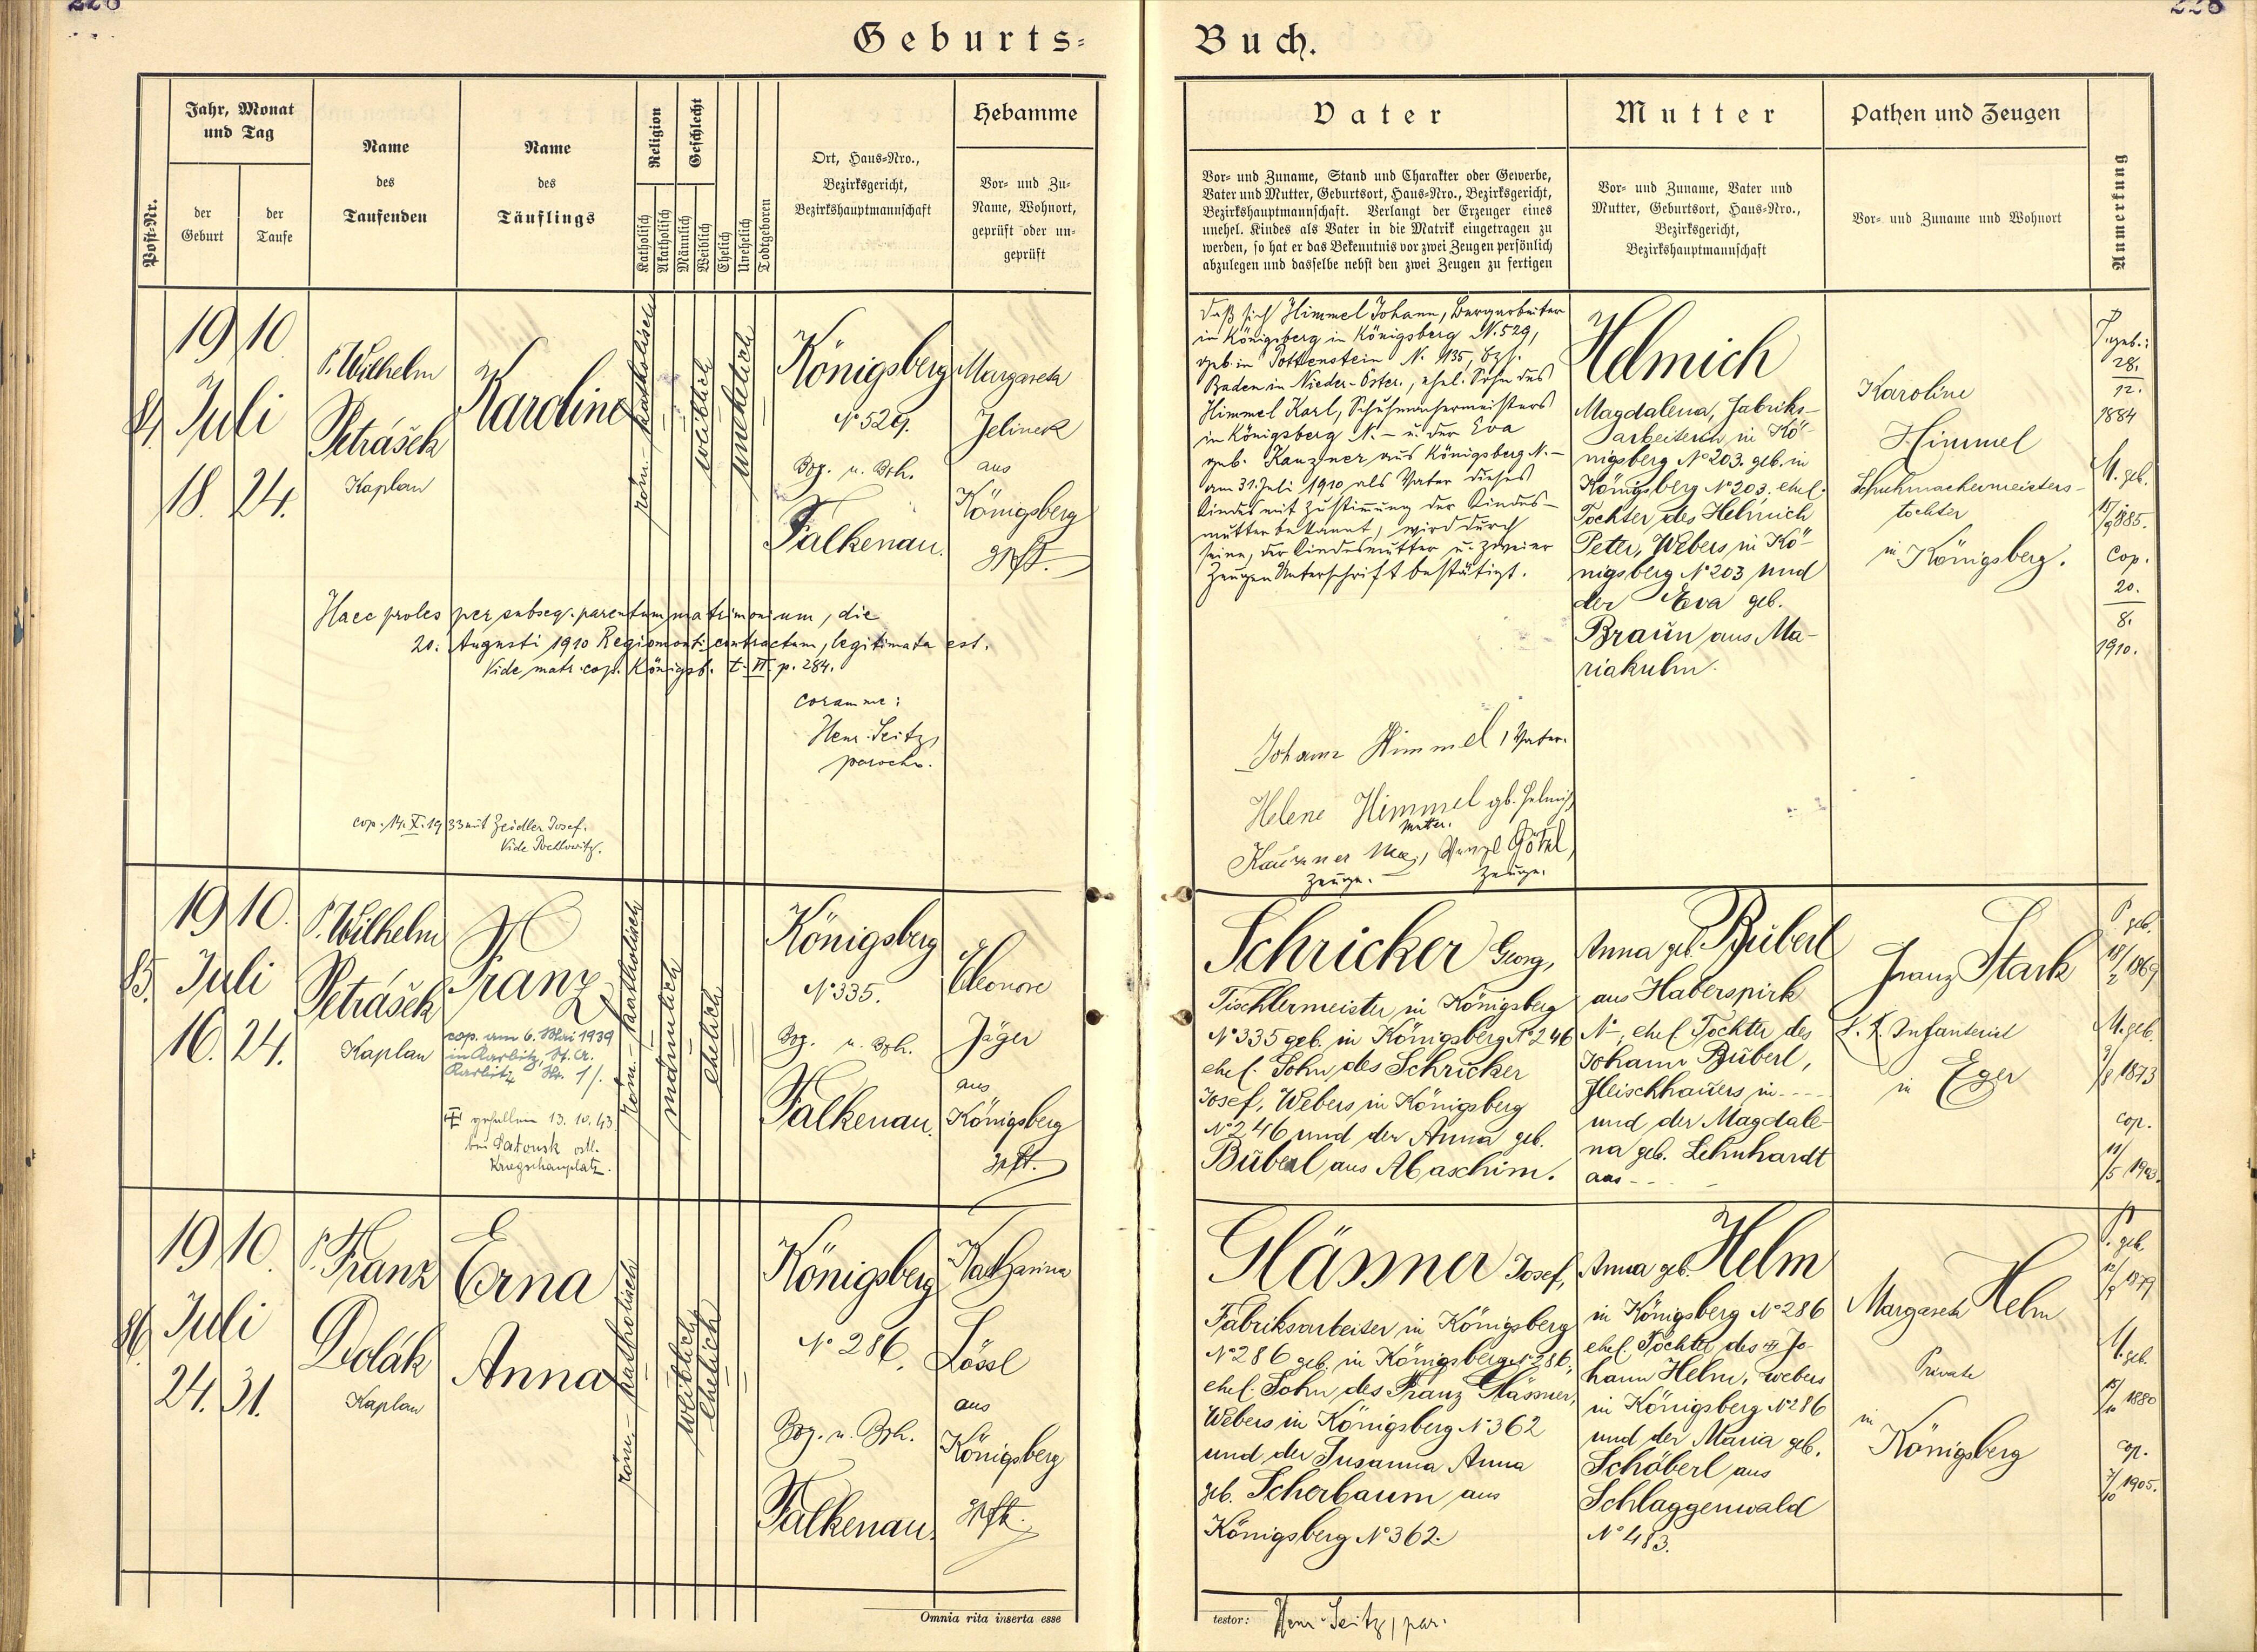 226
226
Geburts-
Buch.
Post-Nr.
Jahr, Monat
und Tag
der
Geburt
der
Taufe
Name
des
Taufenden
Name
des
Täuflings
Religion
Katholisch
Akatholisch
Geschlecht
Männlich
Weiblich
Ehelich
Unehelich
Todtgeboren
Ort, Haus-Nro.,
Bezirksgericht,
Bezirkshauptmannschaft
Hebamme
Vor- und Zu-
Name, Wohnort,
geprüft oder un-
geprüft
Vater
Vor- und Zuname, Stand und Charakter oder Gewerbe,
Vater und Mutter, Geburtsort, Haus-Nro., Bezirksgericht,
Bezirkshauptmannschaft. Verlangt der Erzeuger eines
unehel. Kindes als Vater in die Matrik eingetragen zu
werden, so hat er das Bekenntnis vor zwei Zeugen persönlich
abzulegen und dasselbe nebst den zwei Zeugen zu fertigen
Mutter
Vor- und Zuname, Vater und
Mutter, Geburtsort, Haus-Nro.,
Bezirksgericht,
Bezirkshauptmannschaft
Pathen und Zeugen
Vor- und Zuname und Wohnort
Anmerkung
84.
1910
Juli
18. 24.
P. Wilhelm
Petrášek
Kaplan
Karoline
röm.-katholisch
weiblich
unehelich
Königsberg
N° 529.
Bzg. u. Bzh.
Falkenau.
Margareta
Jelinek
aus
Königsberg
gpft.
Haec proles per subseq. parentum matrimonium, die
20. Augusti 1910 Regiomonti contractum, legitimata est.
Vide matr. cop. Königsb. t. VI p. 284.
coram me:
Henr. Seitz,
parocho.
cop. 14. X. 1933 mit Zeidler Josef.
Vide Pochlowitz.
Daß sich Himmel Johann, Bergarbeiter
in Königsberg in Königsberg N. 529,
geb. in Pottenstein N. 135, Bzh.
Baden in Nieder-Öster., ehel. Sohn des
Himmel Karl, Schuhmachermeisters
in Königsberg N. – u. der Eva
geb. Kanzner aus Königsberg N. –
am 31. Juli 1910 als Vater dieses
Kindes mit Zustimmung der Kindes-
mutter bekannt, wird durch
seine, der Kindesmutter u. zweier
Zeugen Unterschrift bestätigt.
Johann Himmel, Vater.
Helene Himmel gb. Helmich
Mutter.
Wenzl Götzl,
Zeuge. Zeuge.
Helmich
Magdalena, Fabriks-
arbeiterin in Kö-
nigsberg N° 203. geb. in
Königsberg N° 203. ehel.
Tochter des Helmich
Peter, Webers in Kö-
nigsberg N° 203 und
der Eva geb.
Braun aus Ma-
riakulm.
Karoline
Himmel
Schuhmachermeisters-
tochter
in Königsberg.
P. geb.:
28.
12.
1884
M. geb.
17/9 1885.
Cop.
20.
8.
1910.
85.
1910.
Juli
16. 24.
P. Wilhelm
Petrášek
Kaplan
Franz
cop. am 6. Mai 1939
in Karbitz, St. A.
Karbitz Nr. 1/.
gefallen 13. 10. 43
bei Patonsk östl.
Kriegschauplatz.
röm.-katholisch
männlich
ehelich
Königsberg
N° 335.
Bzg. u. Bzh.
Falkenau.
Eleonore
Jäger
aus
Königsberg
gpft.
Schricker Georg,
Tischlermeister in Königsberg
N° 335 geb. in Königsberg N° 246
ehel. Sohn des Schricker
Josef, Webers in Königsberg
N° 246 und der Anna geb.
Büberl aus Maschim.
Anna geb. Büberl
aus Haberspirk
N° –, ehel. Tochter des
Johann Büberl,
Fleischhauers in - - - -
und der Magdale-
na geb. Lehnhardt
aus - - -
Franz Stark
k. k. Infanterist
in Eger
P. geb.
18/2 1869
M. geb.
9/8 1873
cop.
11/5 1903.
86.
1910.
Juli
24. 31.
P. Franz
Dolák
Kaplan
Erna
Anna
röm.-katholisch
weiblich
ehelich
Königsberg
N° 286.
Bzg. u. Bzh.
Falkenau.
Katharina
Lössl
aus
Königsberg
gpft.
Glässner Josef,
Fabriksarbeiter in Königsberg
N° 286 geb. in Königsberg N° 286,
ehel. Sohn des Franz Glässner,
Webers in Königsberg N° 362
und der Susanna Anna
geb. Scherbaum aus
Königsberg N° 362.
Anna geb. Helm
in Königsberg N° 286
ehel. Tochter des Jo-
hann Helm, Webers
in Königsberg N° 286
und der Maria geb.
Schöberl aus
Schlaggenwald
N° 483.
Margareta Helm
Private
in
Königsberg
P. geb.
M. geb.
15/10 1880
cop.
7/10 1905.
Omnia rita inserta esse
testor: Henr. Seitz, par.